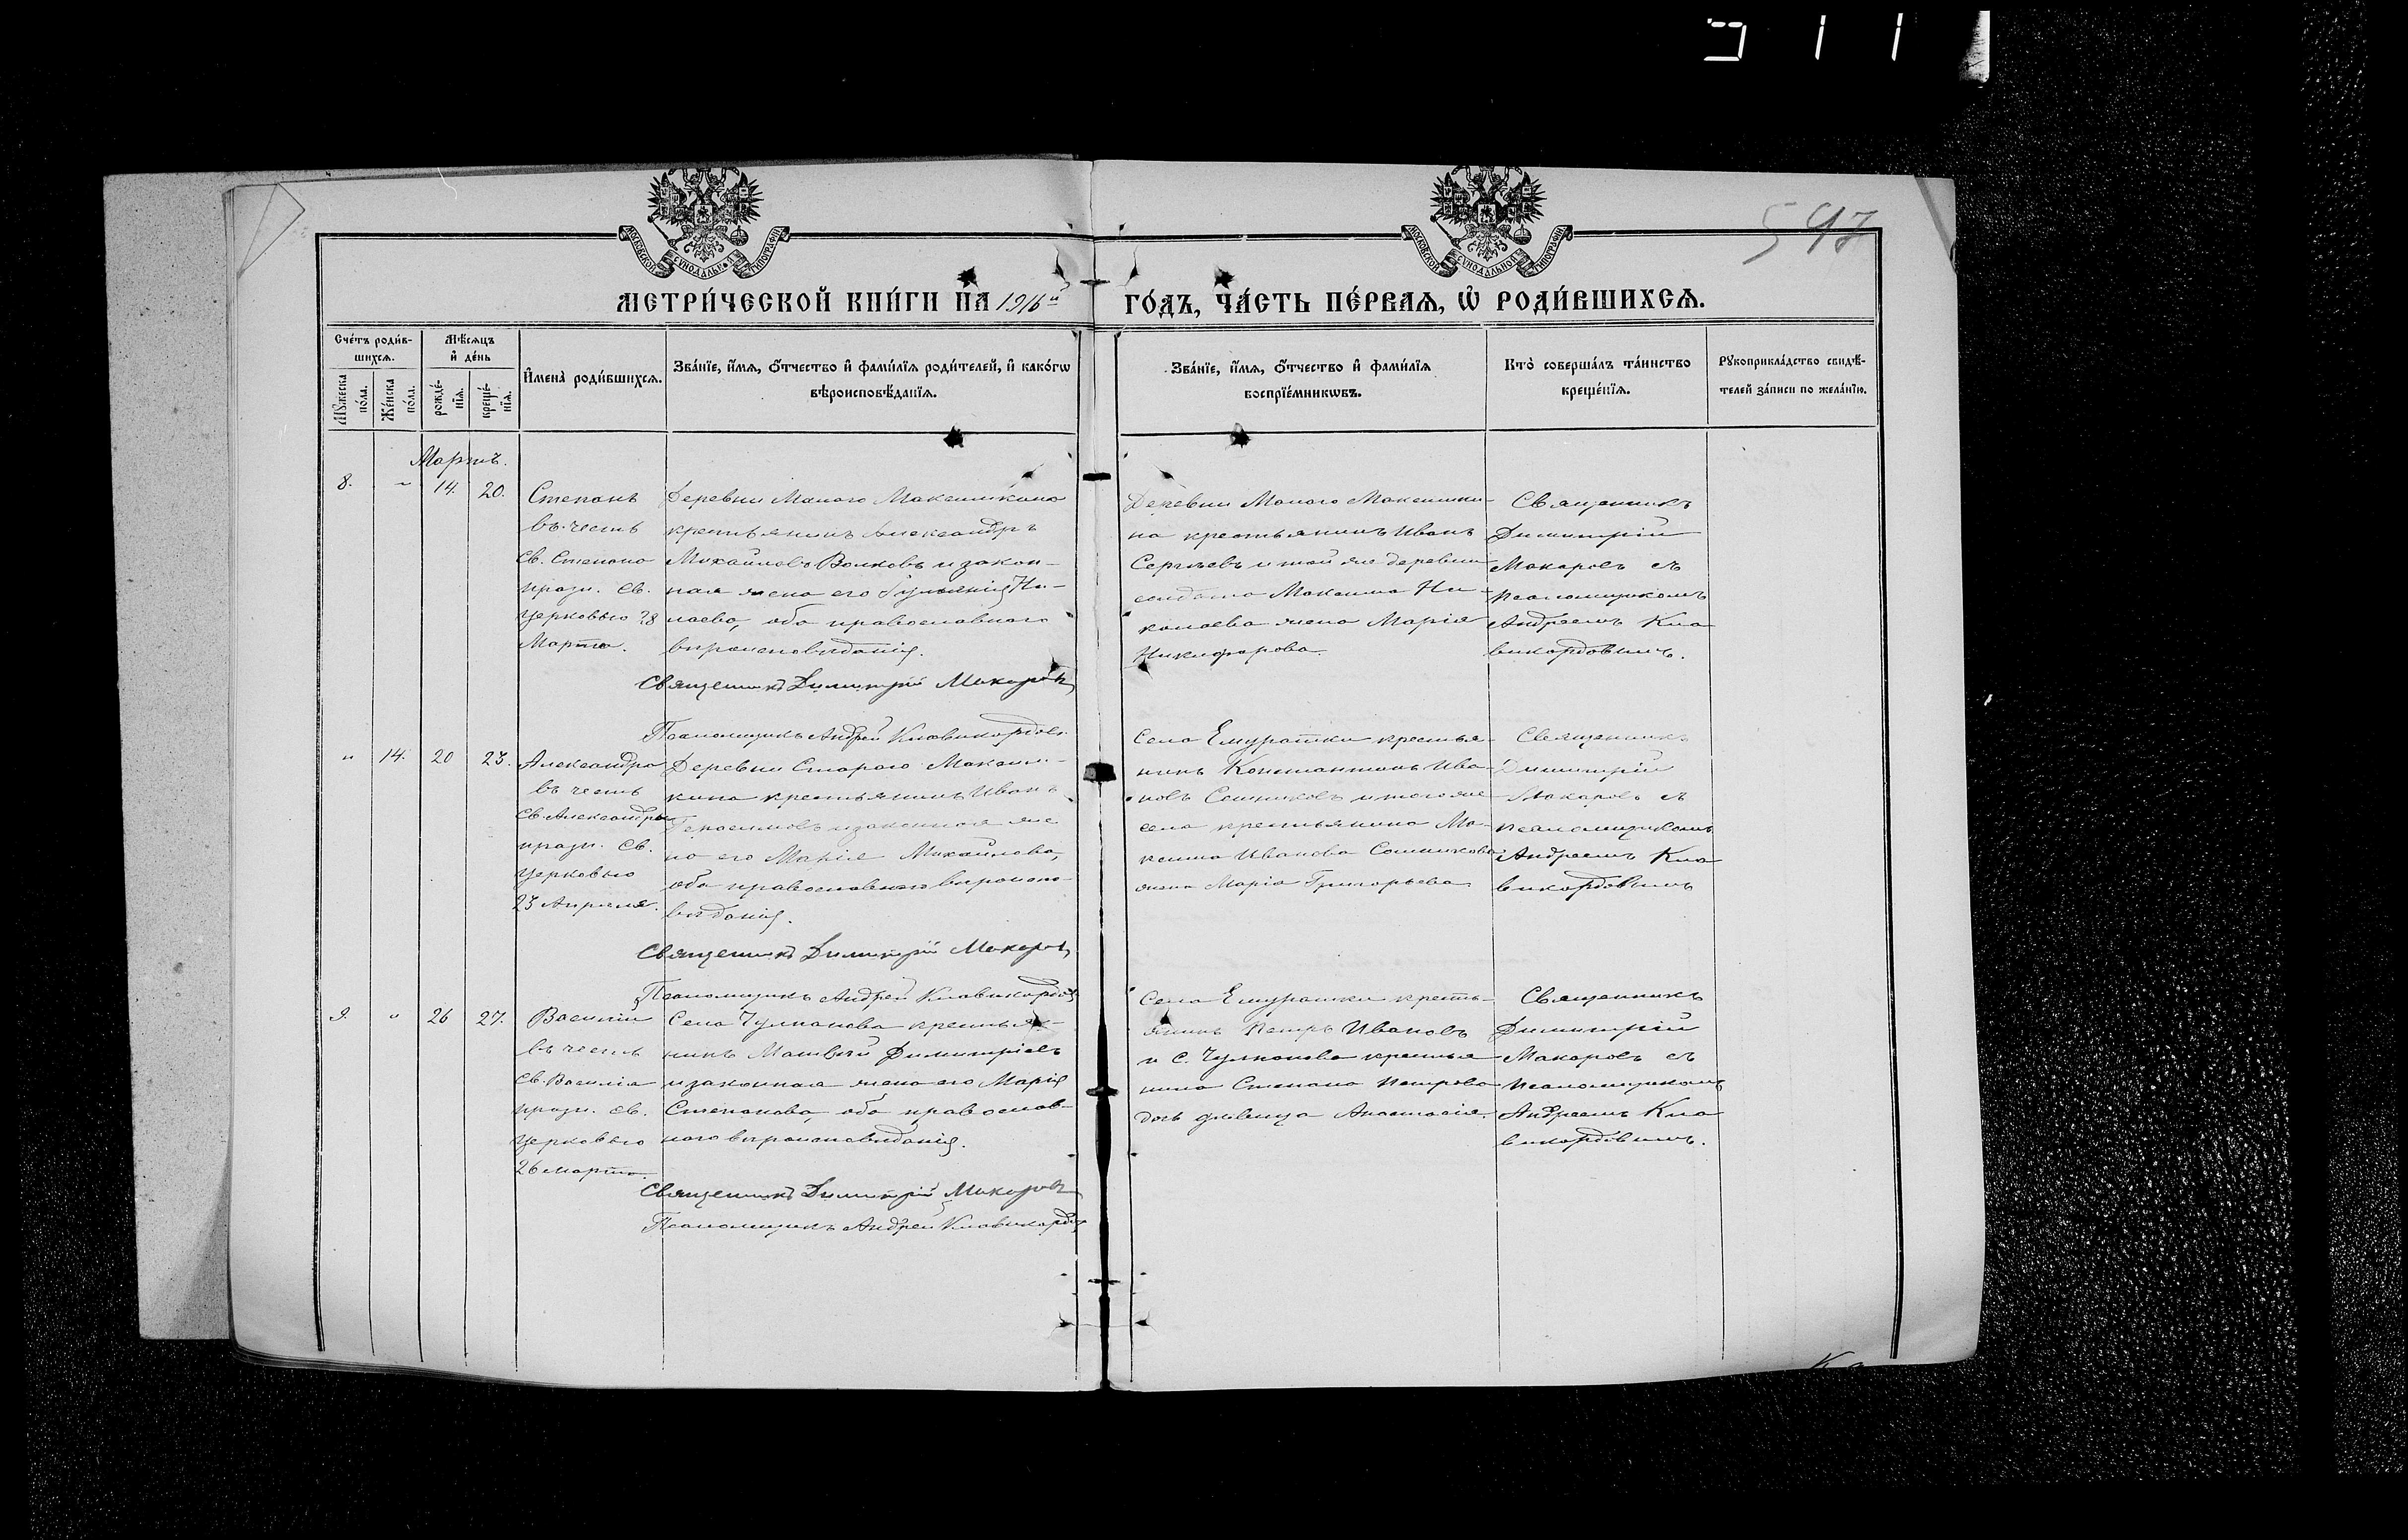 597
МЕТРИ́ЧЕСКОЙ КНИ́ГИ НА 1916й ГО́ДЪ, ЧА́СТЬ ПЕ́РВАЯ, Ѡ РОДИ́ВШИХСЯ.
МОСКОВСКОЙ СУНОДАЛЬНОЙ ТИПОГРАФІИ
МОСКОВСКОЙ СУНОДАЛЬНОЙ ТИПОГРАФІИ
Сче́тъ роди́в-
шихся.
Мѣ́сяцъ
и҆ де́нь
Мꙋ́жеска
по́ла.
Же́нска
по́ла.
рожде́-
нїя.
креще́-
нїя.
И҆мена̀ роди́вшихся.
Зва́нїе, и҆́мя, ѻ҆́тчество и҆ фами́лїя роди́телей, и҆ како́гѡ
вѣроисповѣ́данїя.
Зва́нїе, и҆́мя, ѻ҆́тчество и҆ фами́лїя
воспрїе́мникѡвъ.
Кто̀ соверша́лъ та́инство
креще́нїя.
Рꙋкоприкла́дство свидѣ́-
телей за́писи по жела́нїю.
Мартъ.
8.
14.
20.
Степанъ
въ честь
Св. Степана
празн. св.
церковью 28
Марта.
Деревни Малаго Максимкина
крестьянинъ Александръ
Михайловъ Волковъ и закон-
ная жена его Ни-
лаева, оба православнаго
вѣроисповѣданія.
Священникъ Димитрій Макаровъ
Псаломщикъ Андрей Клавикордовъ
Деревни Малаго Максимки-
на крестьянинъ Иванъ
Сергѣевъ и той же деревни
солдата Максима Ни-
колаева жена Марія
Никифорова.
Священникъ
Димитрій
Макаровъ съ
псаломщикомъ
Андреемъ Кла
викордовымъ.
14.
20
23.
Александра
въ честь
Св. Александры
празн. св.
церковью
23 Апрѣля.
Деревни Стараго Максим-
кина крестьянинъ Иванъ
Герасимовъ и законная же
на его Марія Михайлова,
оба православнаго вѣроиспо-
вѣданія.
Священникъ Димитрій Макаровъ
Псаломщикъ Андрей Клавикордовъ
Села Емуратки крестья-
нинъ Константинъ Ива-
новъ Сошниковъ и того же
села крестьянина Ма-
ксима Иванова Сошникова
жена Марія Григорьева
Священникъ
Димитрій
Макаровъ съ
псаломщикомъ
Андреемъ Кла
викордовымъ
9.
26
27.
Василій
въ честь
Св. Василія
празн. св.
церковью
26 марта.
Села Чулпанова крестья-
нинъ Матвѣй Димитріевъ
и законная жена его Марія
Степанова, оба православ-
наго вѣроисповѣданія.
Священникъ Димитрій Макаровъ
Псаломщикъ Андрей Клавикордовъ
Села Емуратки кресть-
янинъ Петръ Ивановъ
и с. Чулпанова крестья
нина Степана Петрова
дочь дѣвица Анастасія.
Священникъ
Димитрій
Макаровъ съ
псаломщикомъ
Андреемъ Кла
викордовымъ.